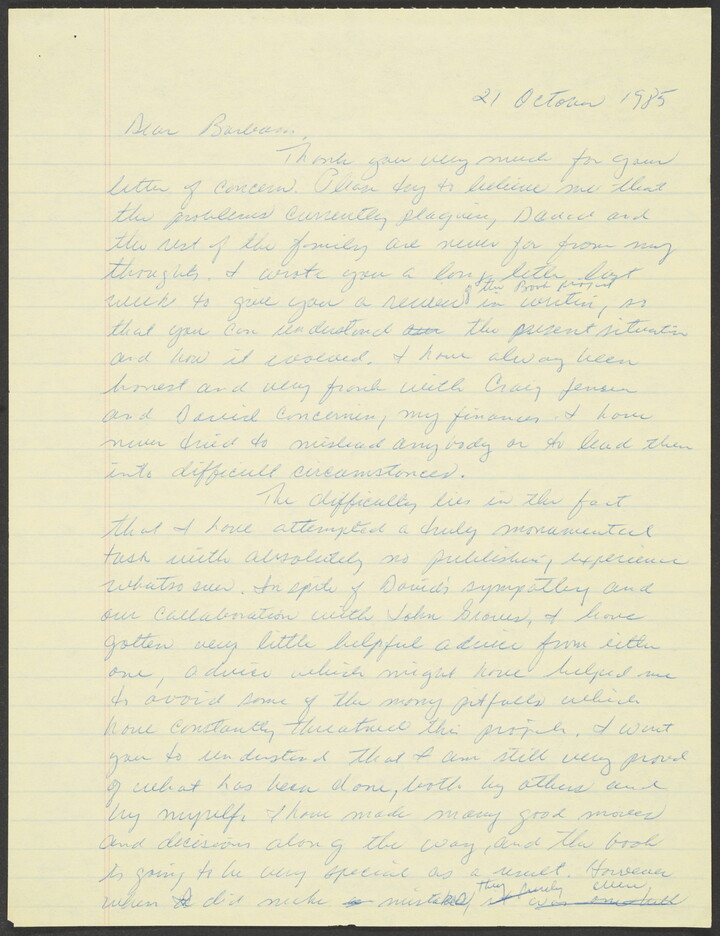 21 October 1985
Dear Barbara,
Thank you very much for your
letter of concern. Please try to believe me that
the problems currently plaguing David and
the rest of the family are never far from my
thoughts. I wrote you a long letter last
week to give you a review of the Book project in writing, so
that you can understand the present situation
and how it evolved. I have always been
honest and very frank with Craig Jensen
and David concerning my finances. I have
never tried to mislead anybody or to lead them
into difficult circumstances.
The difficulty lies in the fact
that I have attempted a truly monumental
task with absolutely no publishing experience
whatsoever. In spite of David's sympathy and
our collaboration with John Graves, I have
gotten very little helpful advice from either
one, advice which might have helped me
to avoid some of the many pitfalls which
have constantly threatened this project. I want
you to understand that I am still very proud
of what has been done, both by others and
by myself. I have made many good moves
and decisions along the way, and the book
is going to be very special as a result. However
when I did make mistakes, they surely were